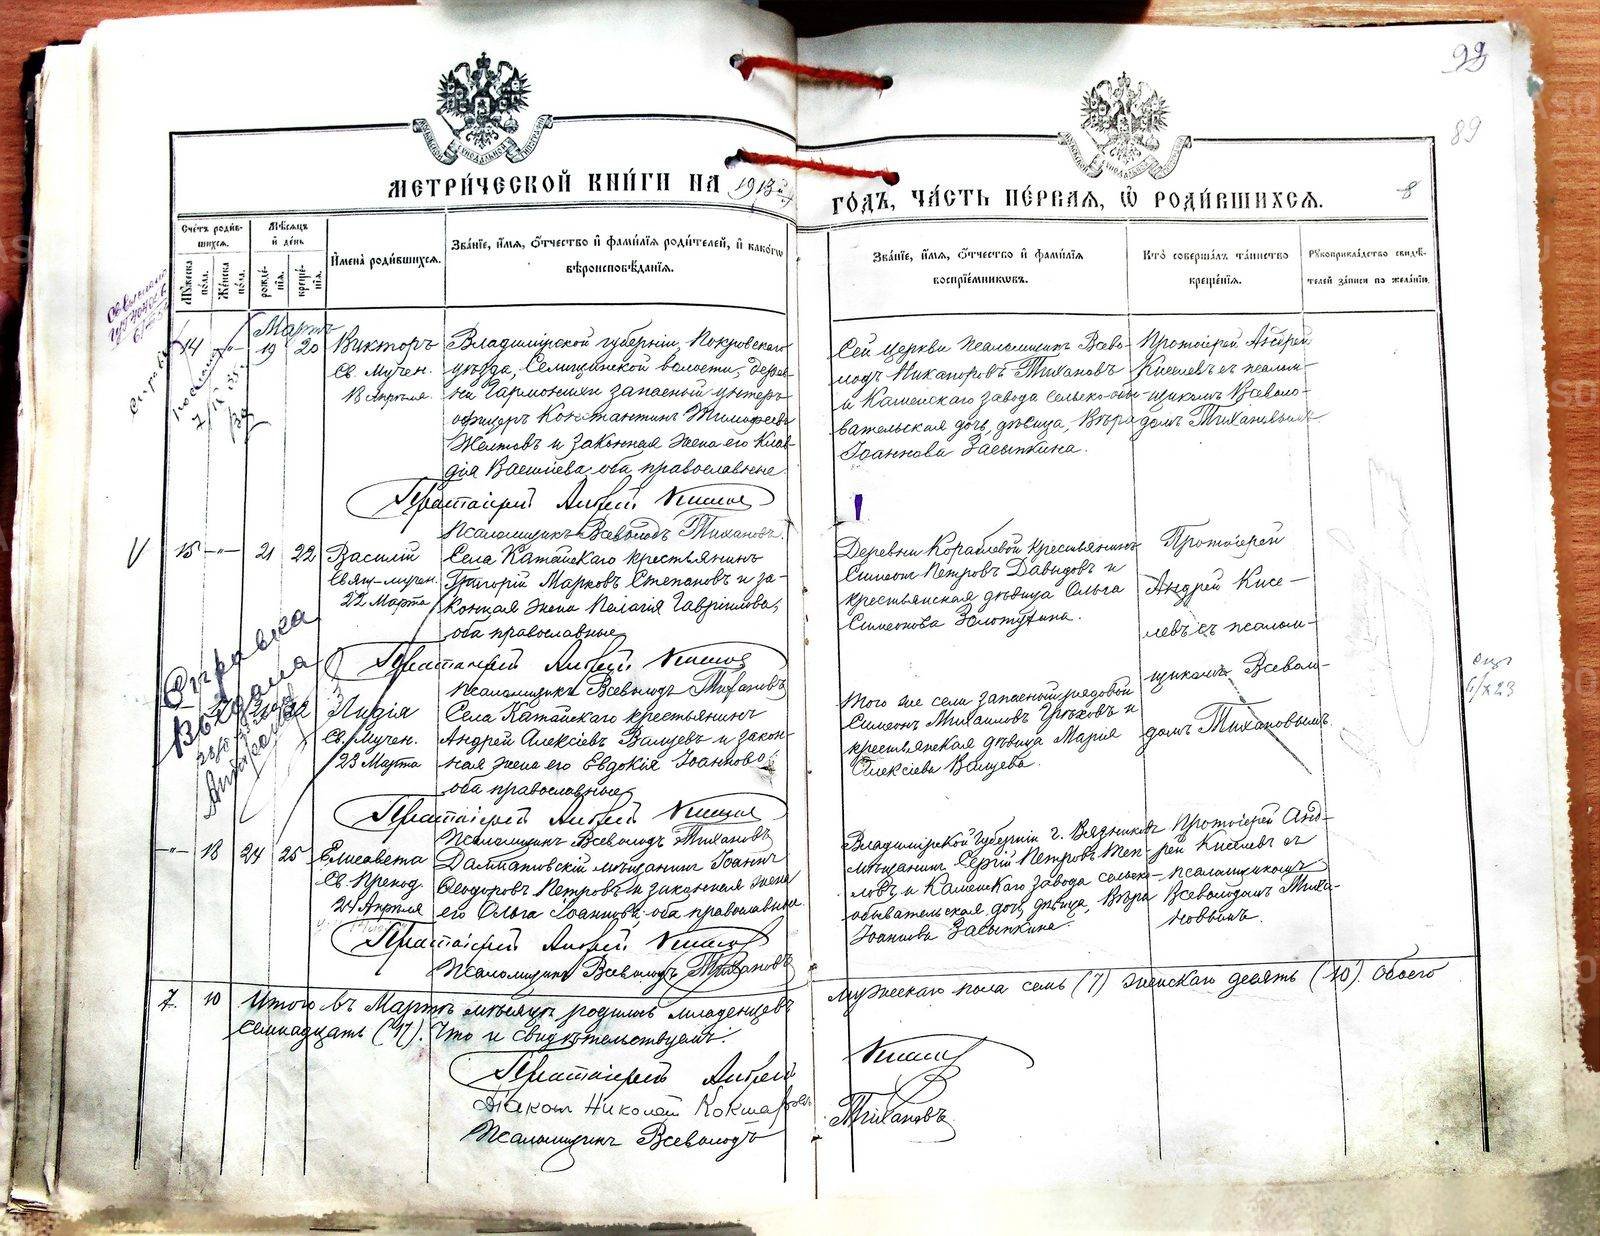 99
89
8
МЕТРИЧЕСКОЙ КНИГИ НА 1913 й
ГОДЪ, ЧАСТЬ ПЕРВАЯ, Ѡ РОДИВШИХСЯ.
Счетъ родив-
шихся.
Мѣсяцъ
и день
Мужеска
пола.
Женска
пола.
рожде-
нія.
креще-
нія.
Имена родившихся.
Званіе, имя, отчество и фамилія родителей, и какого
вѣроисповѣданія.
Званіе, имя, отчество и фамилія
воспріемниковъ.
Кто совершалъ таинство
крещенія.
Рукоприкладство свидѣ-
телей записи по желанію.
Мартъ
14 -"- 19 20
Викторъ
Св. Мучен.
18 Апрѣля.
Владимірской губерніи, Покровскаго
уѣзда, Селищинской волости, дерев-
ни Гармонихи запасный унтеръ
офицеръ Константинъ Тимофеевъ
Желтовъ и законная жена его Клав-
дія Васильева, оба православные
Протоіерей Андрей Киселевъ
Псаломщикъ Всеволодъ Тихановъ.
Сей церкви псаломщикъ Всево-
лодъ Никаноровъ Тихановъ
и Каменскаго завода сельско-обы-
вательская дочь, дѣвица, Вѣра
Іоаннова Засыпкина.
Протоіерей Андрей
Киселевъ съ псалом-
щикомъ Всеволо-
домъ Тихановымъ
V 15 -"- 21 22
Василій
Свящ-мучен.
22 Марта
Села Катайскаго крестьянинъ
Григорій Марковъ Степановъ и за-
конная жена Пелагія Гавріилова,
оба православные
Протоіерей Андрей Киселевъ
Псаломщикъ Всеволодъ Тихановъ
Деревни Кораблевой крестьянинъ
Симеонъ Петровъ Давыдовъ и
крестьянская дѣвица Ольга
Симеонова Золотухина.
Протоіерей
Андрей Кисе-
левъ съ псалом-
щикомъ Всеволо-
домъ Тихановымъ.
Справка
22
Лидія
Св. Мучен.
23 Марта
Села Катайскаго крестьянинъ
Андрей Алексіевъ Валцевъ и закон-
ная жена его Евдокія Іоаннова,
оба православные
Протоіерей Андрей Киселевъ
Псаломщикъ Всеволодъ Тихановъ
Того же села запасный рядовой
Симеонъ Михаиловъ Грѣховъ и
крестьянская дѣвица Марія
Алексіева Валцева.
-"- 18 24 25
Елисавета
Св. Препод.
24 Апрѣля
Далматовскій мѣщанинъ Іоаннъ
Ѳеодоровъ Петровъ и законная жена
его Ольга Іоаннова, оба православные
Протоіерей Андрей Киселевъ
Псаломщикъ Всеволодъ Тихановъ
Владимірской Губерніи г. Вязниковъ
мѣщанинъ Сергій Петровъ Теп-
ловъ и Каменскаго завода сельско-
обывательская дочь, дѣвица, Вѣра
Іоаннова Засыпкина.
Протоіерей Анд-
рей Киселевъ съ
псаломщикомъ
Всеволодомъ Тиха-
новымъ.
7. 10 Итого въ Мартѣ мѣсяцѣ родилось младенцевъ
мужескаго пола семь (7) женскаго десять (10). Обоего
семнадцать (17). Что и свидѣтельствуемъ:
Протоіерей Андрей Киселевъ
Діаконъ Николай Кокшаровъ
Псаломщикъ Всеволодъ Тихановъ.